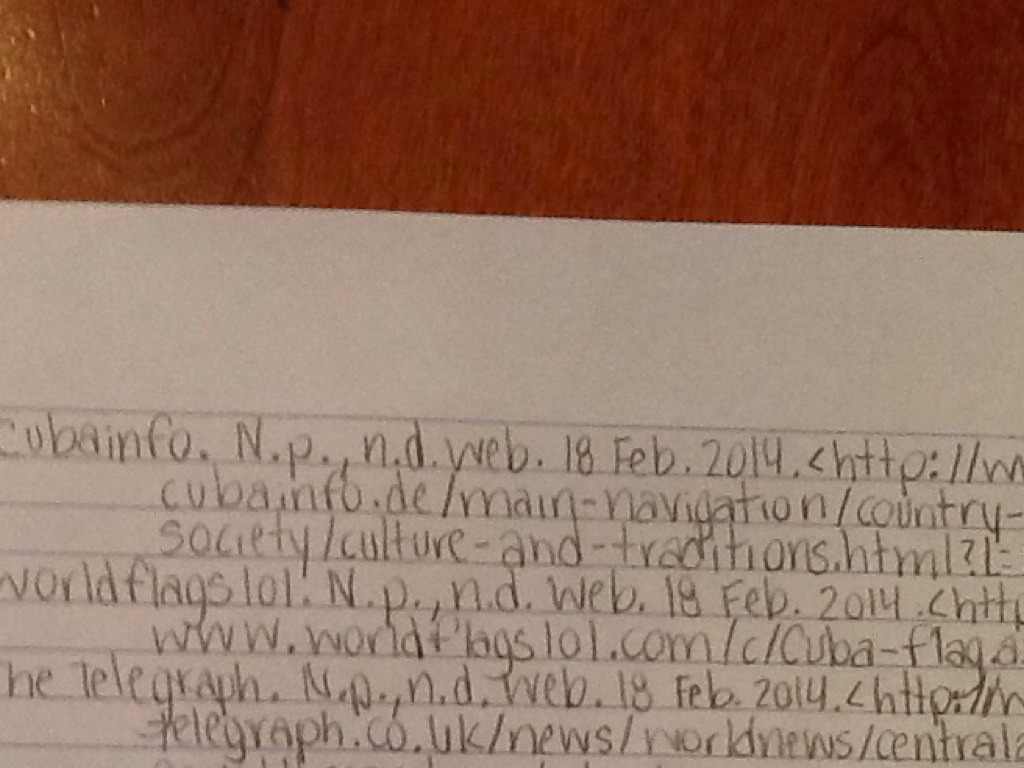 cubainfo. N.p., n.d. Web. 18 Feb. 2014. <http://
cubainfo.de/main-navigation/country-
society/culture-and-traditions.html?L=
worldflags101. N.p., n.d. Web. 18 Feb. 2014. <http
www.worldflags101.com/c/Cuba-flag.a
he Telegraph. N.p., n.d. Web. 18 Feb. 2014. <http://
telegraph.co.uk/news/worldnews/central